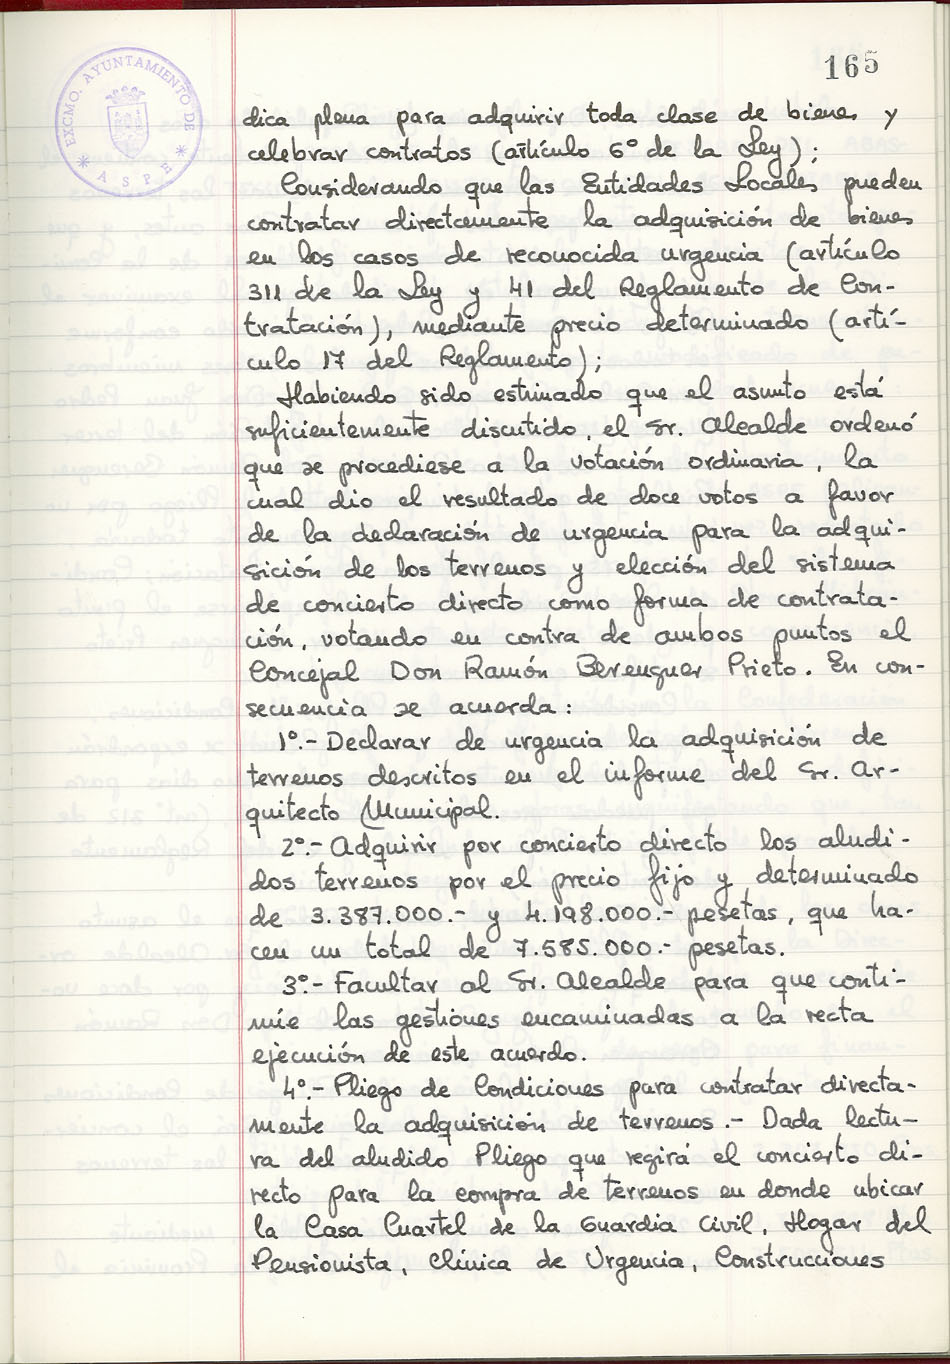 165
EXCMO. AYUNTAMIENTO DE
ASPE
dica plena para adquirir toda clase de bienes y
celebrar contratos (artículo 6º de la Ley);
Considerando que las Entidades Locales pueden
contratar directamente la adquisición de bienes
en los casos de reconocida urgencia (artículo
311 de la Ley y 41 del Reglamento de Con-
tratación), mediante precio determinado (artí-
culo 17 del Reglamento);
Habiendo sido estimado que el asunto está
suficientemente discutido, el Sr. Alcalde ordenó
que se procediese a la votación ordinaria, la
cual dio el resultado de doce votos a favor
de la declaración de urgencia para la adqui-
sición de los terrenos y elección del sistema
de concierto directo como forma de contrata-
ción, votando en contra de ambos puntos el
Concejal Don Ramón Berenguer Prieto. En con-
secuencia se acuerda:
1º.- Declarar de urgencia la adquisición de
terrenos descritos en el informe del Sr. Ar-
quitecto Municipal.
2º.- Adquirir por concierto directo los aludi-
dos terrenos por el precio fijo y determinado
de 3.387.000.- y 4.198.000.- pesetas, que ha-
cen un total de 7.585.000.- pesetas.
3º.- Facultar al Sr. Alcalde para que conti-
núe las gestiones encaminadas a la recta
ejecución de este acuerdo.
4º.- Pliego de Condiciones para contratar directa-
mente la adquisición de terrenos.- Dada lectu-
ra del aludido Pliego que regirá el concierto di-
recto para la compra de terrenos en donde ubicar
la Casa Cuartel de la Guardia Civil, Hogar del
Pensionista, Clínica de Urgencia, Construcciones